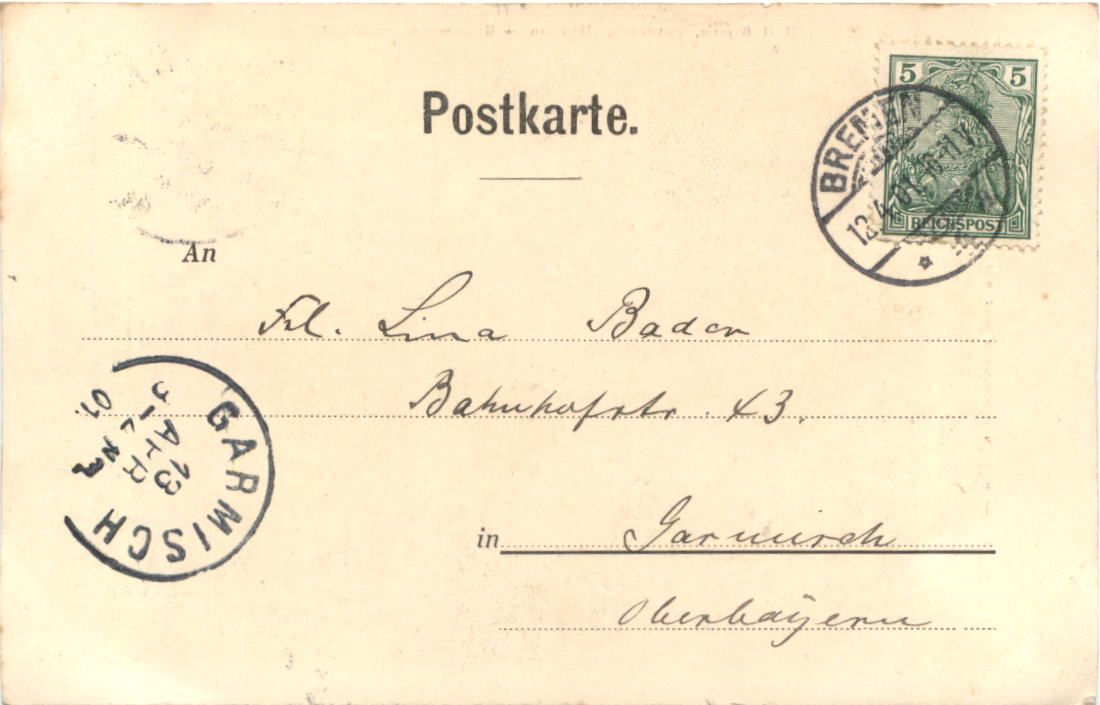 Postkarte.
5 5
REICHSPOST
BREMEN
12.4.01.
An
Frl. Lina Bader
Bahnhofstr. 43.
in Garmisch
Oberbayern
GARMISCH
13
APR
01